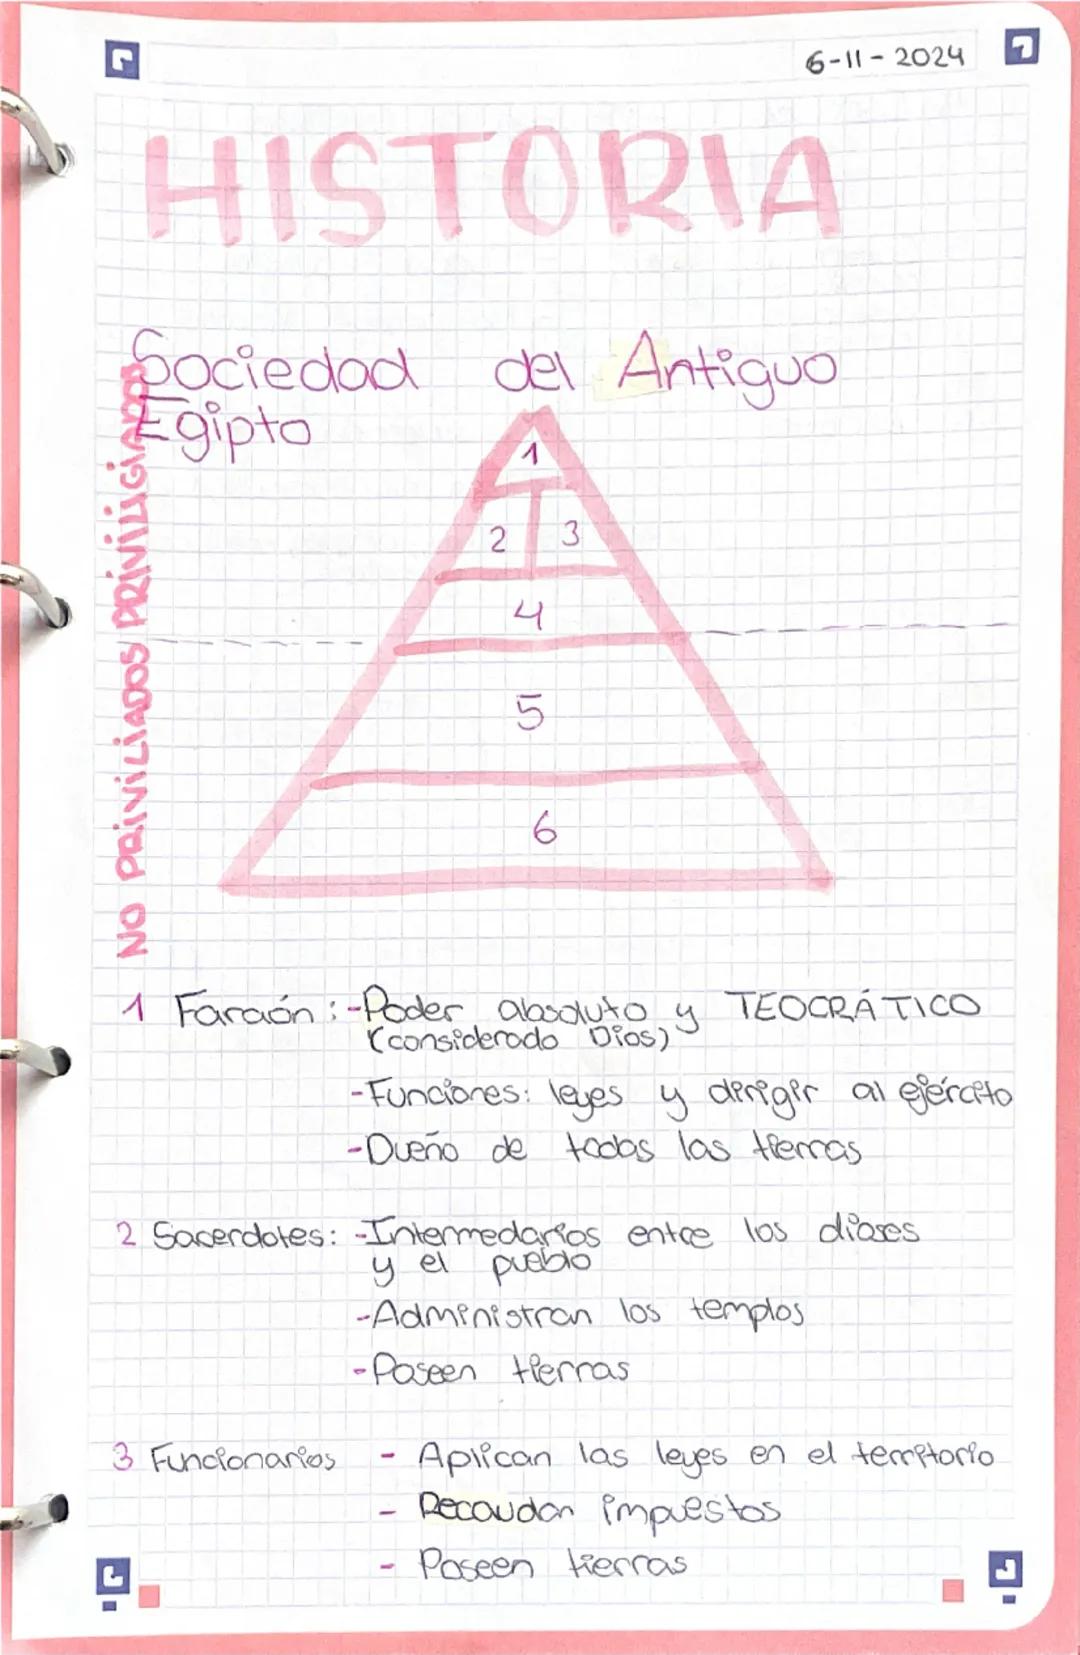 6-11-2024
HISTORIA
Sociedad del Antiguo
Egipto
PRIVILIGIADOS
NO PRIVILIADOS
1
2 3
4
5
6
1 Faraón: -Poder absoluto y TEOCRÁTICO
(considerado Dios)
-Funciones: leyes y dirigir al ejército
-Dueño de todas las tierras
2 Sacerdotes: -Intermedarios entre los dioses
y el pueblo
-Administran los templos
-Poseen tierras
3 Funcionarios - Aplican las leyes en el territorio
- Recaudan impuestos
- Poseen tierras